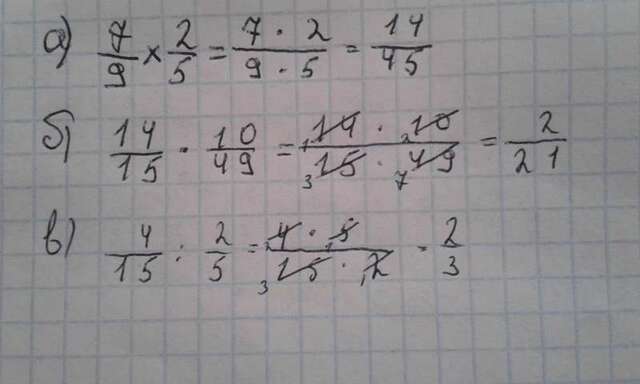 а) 7/9 × 2/5 = 7 · 2/9 · 5 = 14/45
б) 14/15 · 10/49 = 14 · 10/15 · 49 = 2/21
в) 4/15 : 2/5 = 4 · 5/15 · 2 = 2/3